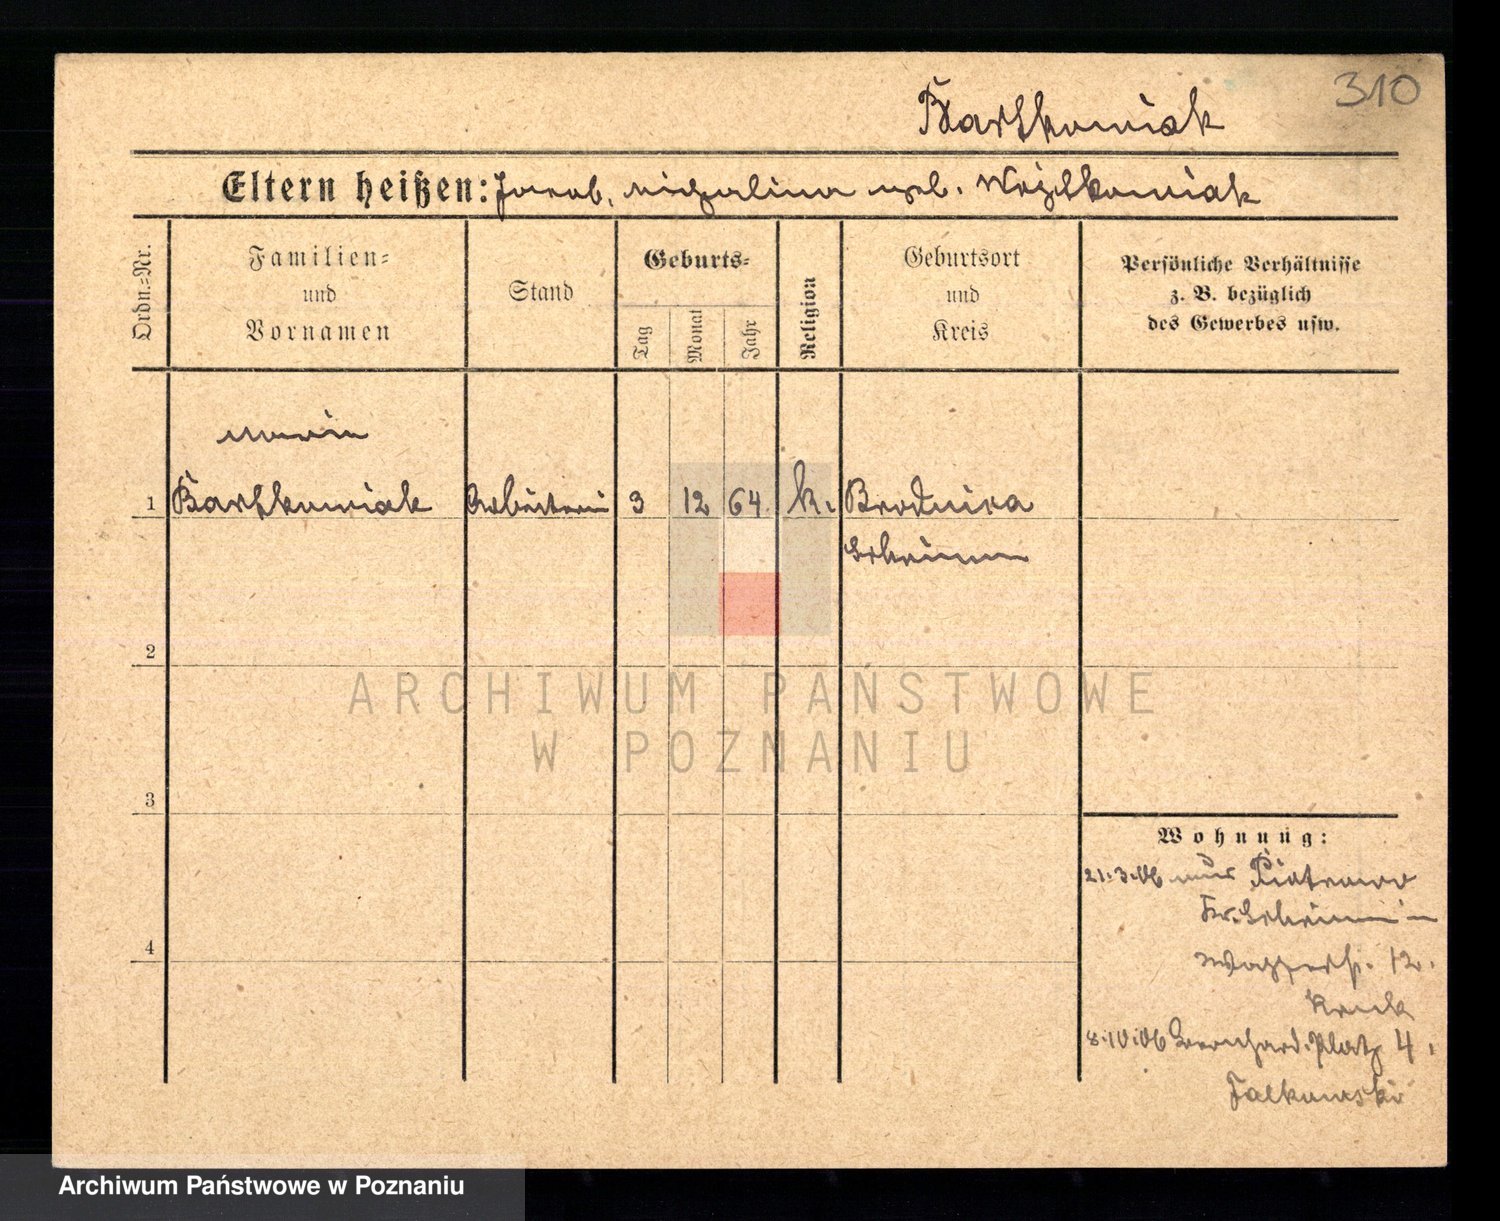 310
Bartkowiak
Eltern heißen: Jacob, Michalina geb. Wojtkowiak
Ordn.-Nr.
Familien-
und
Vornamen
Stand
Geburts-
Tag
Monat
Jahr
Religion
Geburtsort
und
Kreis
Persönliche Verhältnisse
z. B. bezüglich
des Gewerbes usw.
Marie
1 Bartkowiak Arbeiterin 3 12 64. k. Brodnica
Schrimm
2
3
4
Wohnung:
21.3.06 aus Piotrowo
Kr. Schrimm in
12.
8.10.06 Bernhard.Platz 4.
Falkowski
ARCHIWUM PAŃSTWOWE
W POZNANIU
Archiwum Państwowe w Poznaniu